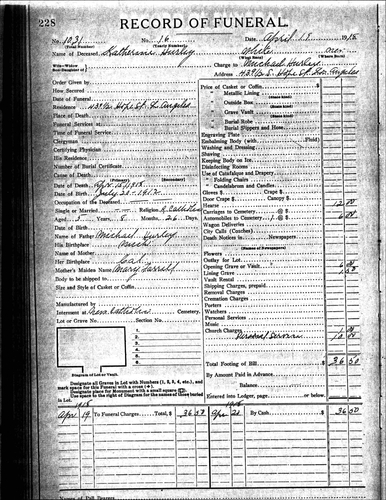 228
RECORD OF FUNERAL.
No. 1031 No. 16 Date April 1918
(Total Number) (Yearly Number)
Name of Deceased Katherine Hurley White
Charge to Michael Hurley
Address Hope St. Los Angeles
Order Given by
How Secured
Date of Funeral
Residence Hope St. Los Angeles
Place of Death
Funeral Services at
Time of Funeral Service
Clergyman
Certifying Physician
His Residence
Number of Burial Certificate
Cause of Death
Date of Death Apr 15 1918
Date of Birth July 20 1912
Occupation of the Deceased
Single or Married Religion R. Catholic
Aged 5 8 26 Days
Date of Birth
Name of Father Michael Hurley
His Birthplace
Name of Mother
Her Birthplace Cal
Mother's Maiden Name Mary Farrell
Body to be shipped to
Size and Style of Casket or Coffin
Manufactured by
Interment at Cemetery.
Lot or Grave No. Section No.
1.
2.
3.
4.
5.
6.
Diagram of Lot or Vault.
Designate all Graves in Lot with Numbers (1, 2, 3, 4, etc.), and
mark space for this Funeral with a cross (+).
Designate place for Monument with a small square
Use space to the right of Diagram for the names of those buried
in Lot.
Price of Casket or Coffin
" Metallic Lining
" Outside Box
" Grave Vault
" Burial Robe
" Burial Slippers and Hose
Engraving Plate
Embalming Body (with Fluid)
Washing and Dressing
Shaving
Keeping Body on Ice
Disinfecting Rooms
Use of Catafalque and Drapery
" Folding Chairs
" Candelabrum and Candles
Gloves $ Crape $
Door Crape $ Canopy $
Hearse 12 00
Carriages to Cemetery @ $
Automobiles to Cemetery 1 @ $ 6 00
Wagon Deliveries
City Calls (Coaches)
Death Notices in Newspapers
(Names of Newspapers)
Flowers
Outlay for Lot
Opening Grave or Vault 6 00
Lining Grave 1 50
Vault Rental
Shipping Charges, prepaid
Removal Charges
Cremation Charges
Porters
Watchers
Personal Services
Music
Church Charges 1 00
Personal Service 10 00
Total Footing of Bill 36 50
By Amount Paid in Advance
Balance
Entered into Ledger, page or below.
1918 1918
Apr 19 To Funeral Charges Total, $ 36 50 Apr 20 By Cash 36 50